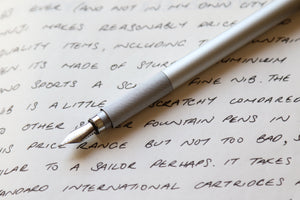 EVER (AND NOT IN MY OWN CITY
MAKES REASONABLY PRICE
QUALITY ITEMS, INCLUDING FOUNTAIN
EN. IT'S MADE OF STURD ALUMINIUM
AND SPORTS A SC FINE NIB. THE
IB IS A LITTLE SCRATCHY COMPARED
TO OTHER S R FOUNTAIN PENS IN
HIS PRICE RANGE BUT NOT TOO BAD, S
ILAR TO A SAILOR PERHAPS. IT TAKES
ANDARD INTERNATIONAL CARTRIDGES